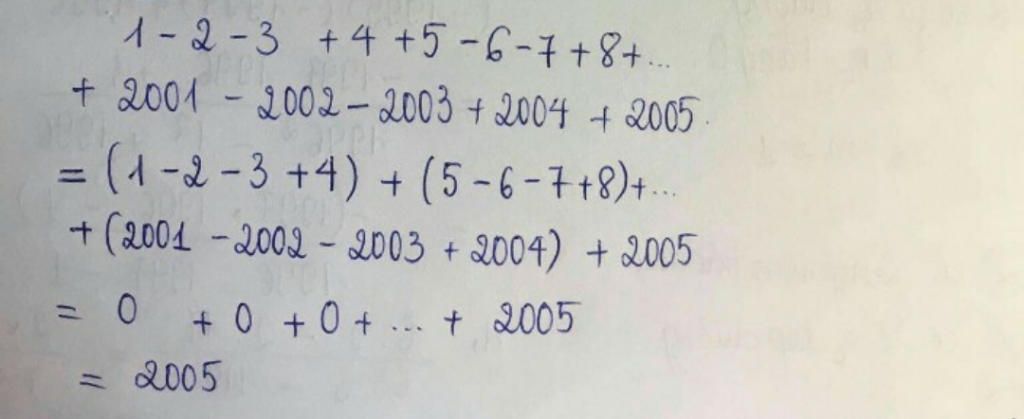 1 - 2 - 3 + 4 + 5 - 6 - 7 + 8 + ...
+ 2001 - 2002 - 2003 + 2004 + 2005.
= (1 - 2 - 3 + 4) + (5 - 6 - 7 + 8) + ...
+ (2001 - 2002 - 2003 + 2004) + 2005
= 0 + 0 + 0 + ... + 2005
= 2005